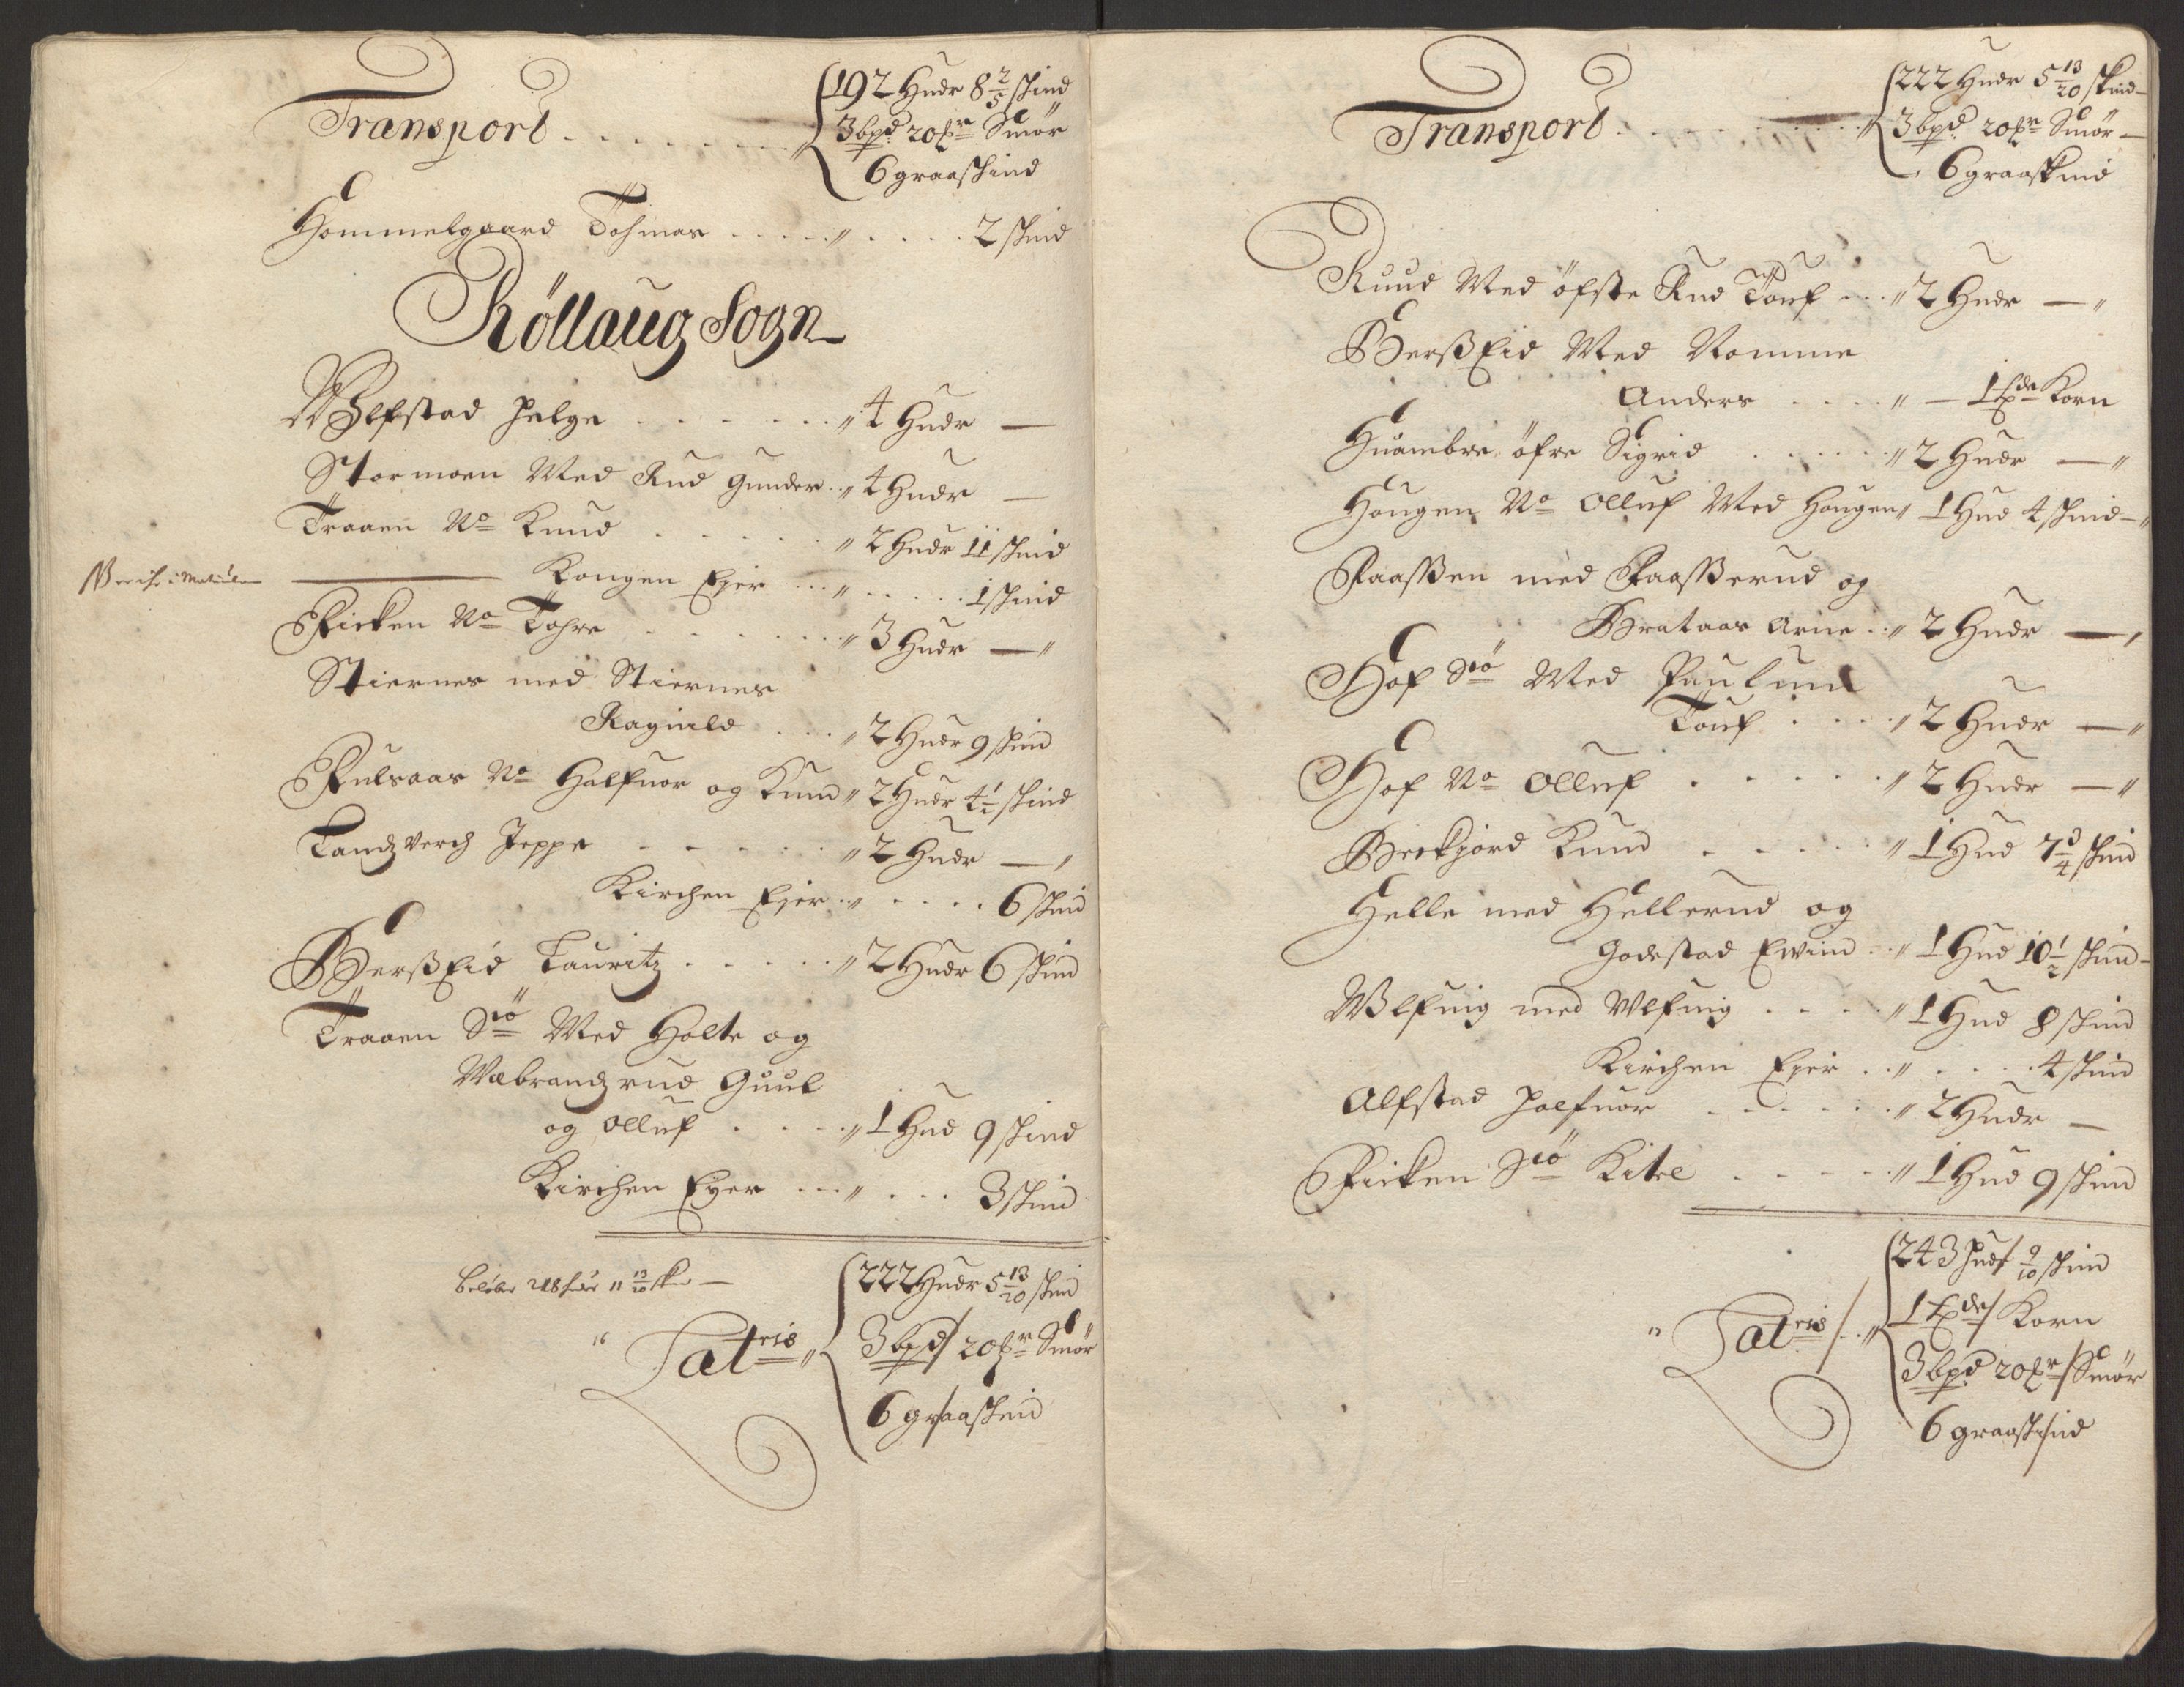 Transport . . . . . . . 192 Hudr 8 2/5 skind
3 bpd 20 Mr Smör
6 graaskind
Hommelgaard Tohmas . . . . " . . . . 2 skind
Röllaug Sogn
Wlfstad Helge . . . . . . " 4 Hudr —
Stormoen Med Rud Gunder . . " 4 Hudr —
Traaen No Knud . . . . . " 2 Hudr 11 skind
Kongen Ejer . . . " . . . . 1 skind
Ficken No Tohre . . . . . . " 3 Hudr — "
Stiernes med Stiernes
Raginld . . . " 2 Hudr 9 skind
Fulsaas No Halfuor og Knud " 2 Hudr 4 1/2 skind
Tandzverch Jeppe . . . . . " 2 Hudr — "
Kirchen Ejer . . " . . . . 6 skind
BerßEid Lauritz . . . . . " 2 Hudr 6 skind
Traaen Siö Med Holte og
Wæbrandzrud Guul
og Olluf . . . . " 1 Hud 9 skind
Kirchen Eyer . . . " . . . 3 skind
222 Hudr 5 13/20 skind
Latris 3 bpd 20 Mr Smör
6 graaskind
Transport . . . . . . . . . 222 Hudr 5 13/20 skind —
3 bpd 20 Mr Smör —
6 graaskind
Ruud Med öfste Rud Touf . . . " 2 Hudr — "
BerßEid Med Nomme
Anders . . . . " — 1 Korn
Huambre öfre Sigrid . . . . . " 2 Hudr — "
Hougen No Olluf Med Hougen " 1 Hud 4 skind — "
Faaßen med Faaßerud og
Brataas Arne . . " 2 Hudr — "
Hof Siö Med
Touf . . . . " 2 Hudr — "
Hof No Olluf . . . . . " 2 Hudr — "
Beckjord Knud . . . . . " 1 Hud 7 3/4 skind
Helle med Hellerud og
Godestad Ewind . . " 1 Hud 10 1/2 skind —
Wlfuig med Wlfuig . . . . " 1 Hud 8 skind
Kirchen Ejer . . " . . . . 4 skind
Alfstad Halfuor . . . . . " 2 Hudr —
Ficken Siö Kitel . . . . . " 1 Hud 9 skind
243 Hud 9/10 skind
1 Korn
Latris 3 bpd 20 Mr Smör
6 graaskind